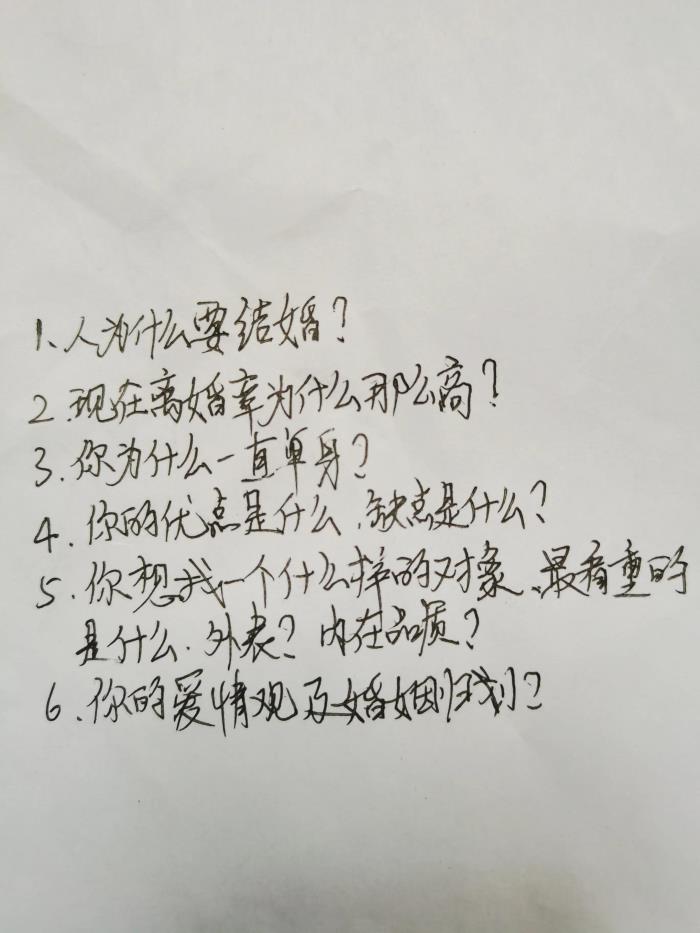 1、人为什么要结婚？
2.现在离婚率为什么那么高？
3.你为什么一直单身？
4.你的优点是什么、缺点是什么？
5.你想找一个什么样的对象、最看重的
是什么.外表？内在品质？
6、你的爱情观及婚姻归划？